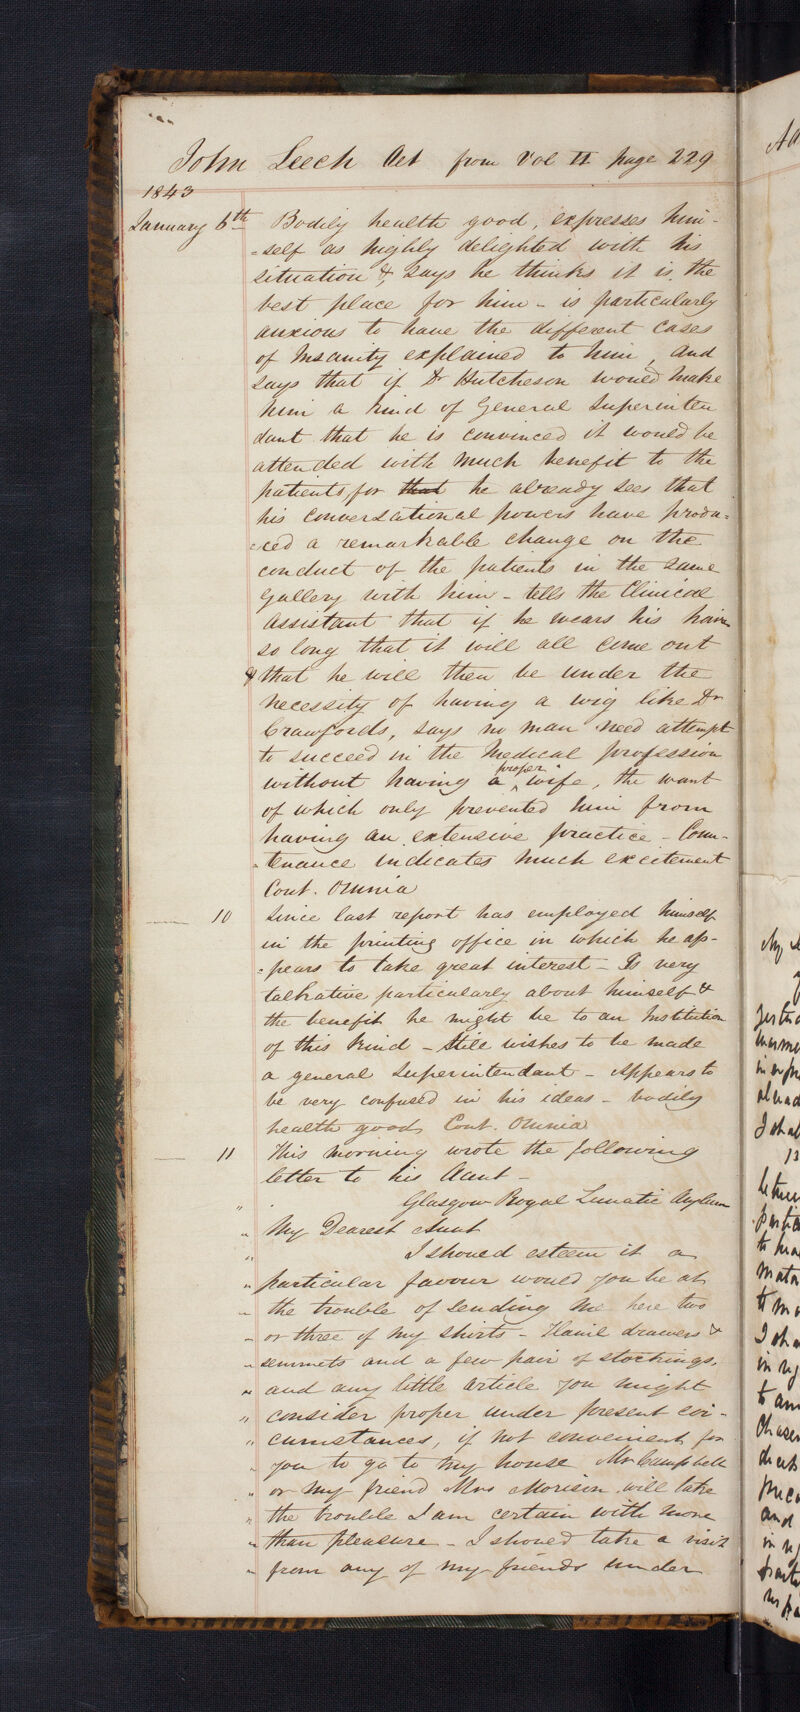 John Leech Aet from Vol II page 229
1843
January 6th Bodily health good, expresses him-
=self as highly delighted with his
situation & says he thinks it is the
best place for him - is particularly
anxious to have the different cases
of Insanity explained to him, and
says that if Dr Hutcheson would make
him a kind of General Superinten
dant that he is convinced it would be
attended with much benefit to the
patients for that he already sees that
his conversational powers have produ=
=ced a remarkable change on the
conduct of the patients in the same
Gallery with him - tells the Clinical
assistant that if he wears his hair
so long that it will all come out
& that he will then be under the
necessity of having a wig like Dr
Crawfords, says no man need attempt
to succeed in the Medical profession
without having a proper wife, the want
of which only prevented him from
having an extensive practice - Coun-
=tenance indicates much excitement
Cont. Omnia
10 Since last report has employed himself
in the printing office in which he ap-
=pears to take great interest - Is very
talkative particularly about himself &
the benefit he might be to an Institution
of this kind - Still wishes to be made
a general Superintendant - Appears to
be very confused in his ideas - bodily
health good Cont. Omnia
11 This morning wrote the following
letter to his Aunt -
" Glasgow Royal Lunatic Asylum
" My Dearest Aunt
" I should esteem it a
" particular favour would you be at
" the trouble of sending me here two
" or three of my shirts - Flanil drawers &
" semmets and a few pair of stockings,
" and any little article you might
" consider proper under present cir-
" cumstances, if not convenient for
" you to go to my house Mr Campbell
" or my friend Mrs Morison will take
" the trouble I am certain with more
" than pleasure - I should take a visit
" from any of my friends under